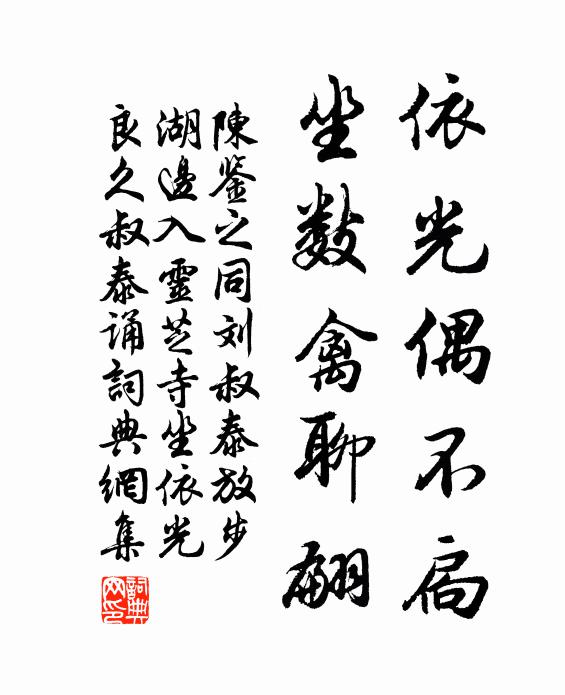 依光偶不扃
坐数禽聊翩
陳鉴之同刘叔泰放步
湖邊入靈芝寺坐依光
良久叔泰诵詞典網集
詞典
网印